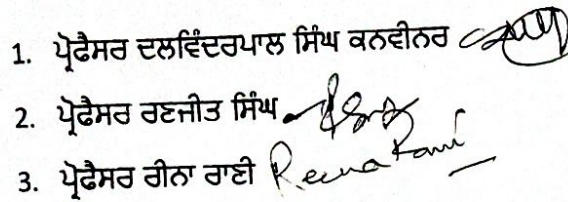 1. ਪ੍ਰੋਫੈਸਰ ਦਲਵਿੰਦਰਪਾਲ ਸਿੰਘ ਕਨਵੀਨਰ
2. ਪ੍ਰੋਫੈਸਰ ਰਣਜੀਤ ਸਿੰਘ
3. ਪ੍ਰੋਫੈਸਰ ਰੀਨਾ ਰਾਣੀ Reena Rani